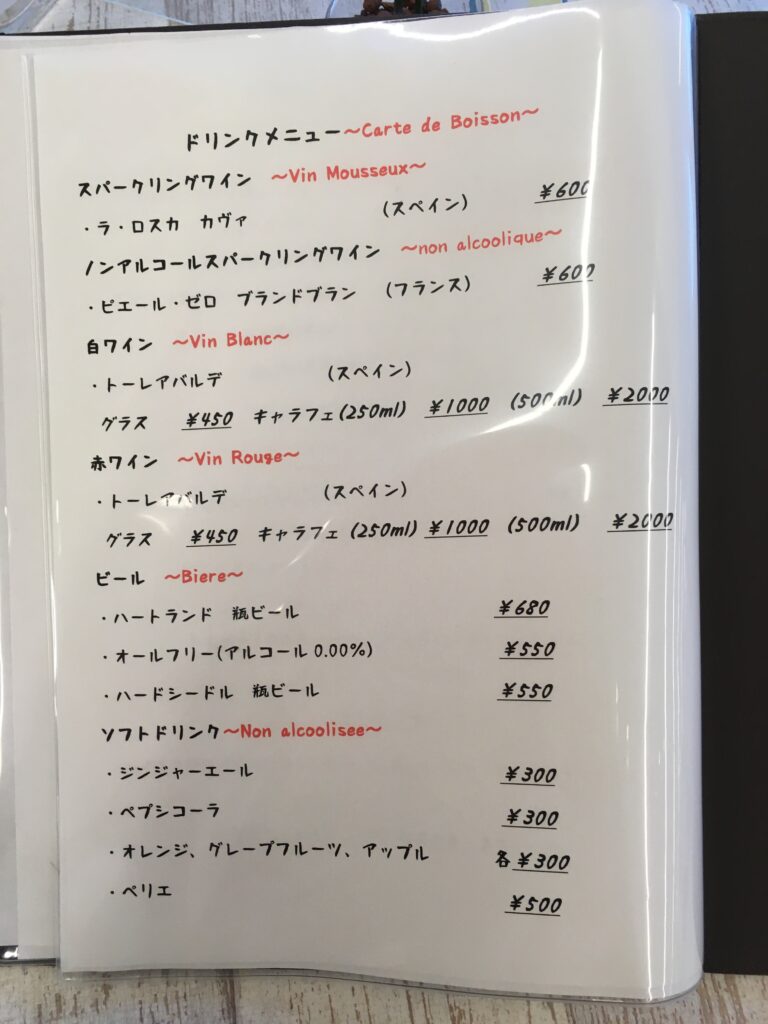 ドリンクメニュー～Carte de Boisson～
スパークリングワイン ～Vin Mousseux～
・ラ・ロスカ カヴァ (スペイン) ¥600
ノンアルコールスパークリングワイン ～non alcoolique～
・ピエール・ゼロ ブランドブラン (フランス) ¥600
白ワイン ～Vin Blanc～
・トーレアバルデ (スペイン)
グラス ¥450 キャラフェ(250ml) ¥1000 (500ml) ¥2000
赤ワイン ～Vin Rouge～
・トーレアバルデ (スペイン)
グラス ¥450 キャラフェ(250ml) ¥1000 (500ml) ¥2000
ビール ～Biere～
・ハートランド 瓶ビール ¥680
・オールフリー(アルコール0.00%) ¥550
・ハードシードル 瓶ビール ¥550
ソフトドリンク～Non alcoolisee～
・ジンジャーエール ¥300
・ペプシコーラ ¥300
・オレンジ、グレープフルーツ、アップル 各¥300
・ペリエ ¥500